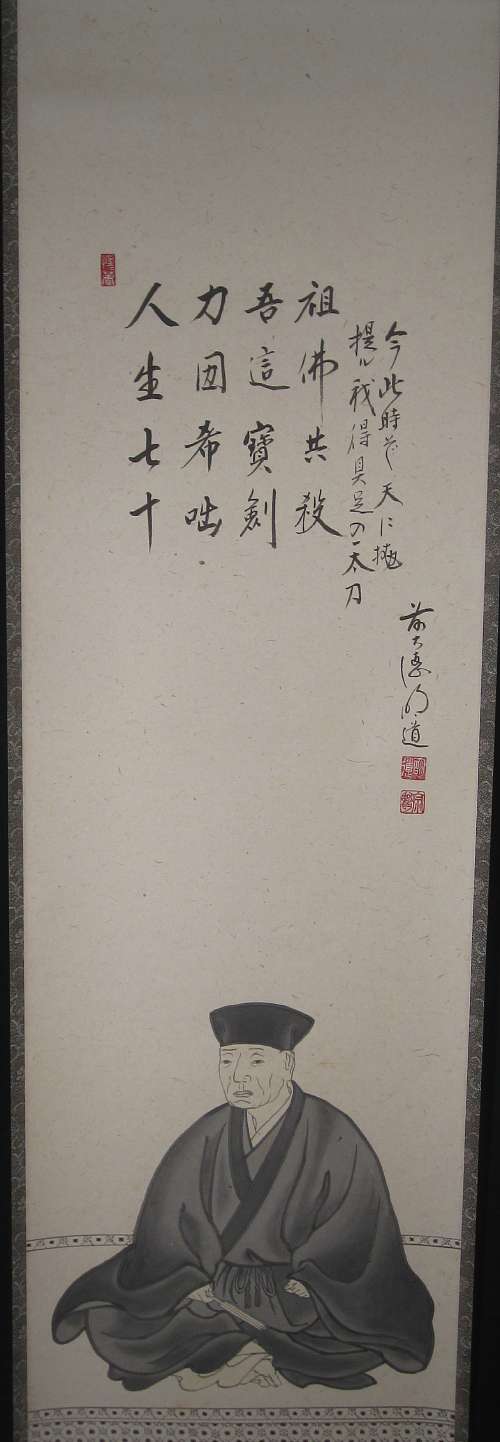 人生七十
力囲希咄
吾這寶劍
祖佛共殺
提ル我得具足の一太刀
今此時ぞ天に抛
前大徳明道